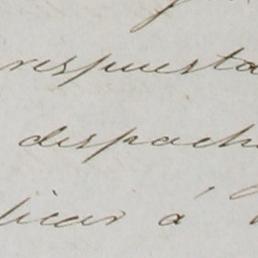 respuesta
despach
licar á